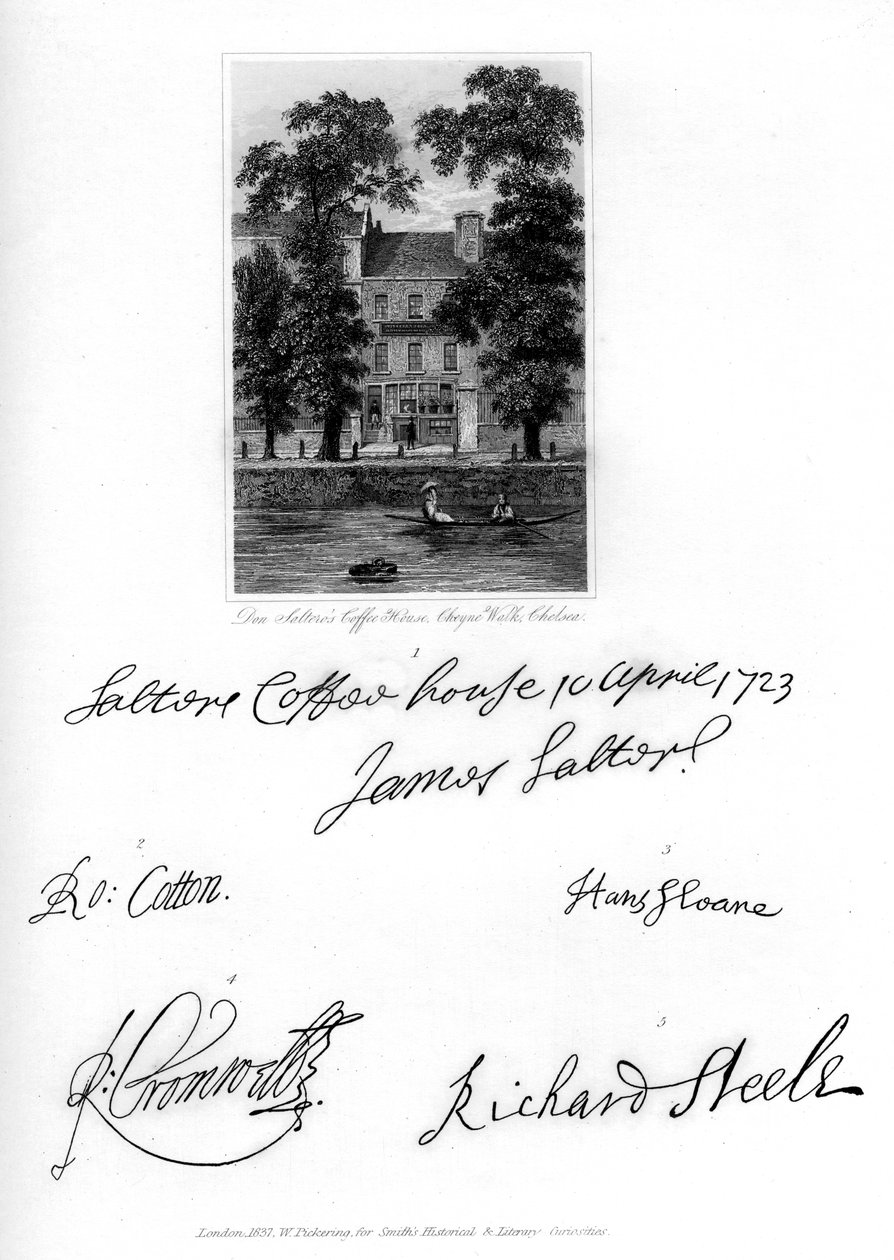 Don Saltero's Coffee House, Cheyne Walk, Chelsea.
1
Saltore Coffee house 10 April, 1723
James Saltore
2
Ro: Cotton.
3
Hans Sloane
4
R: Cromwell
5
Richard Steele
London, 1837, W. Pickering, for Smith's Historical & Literary Curiosities.